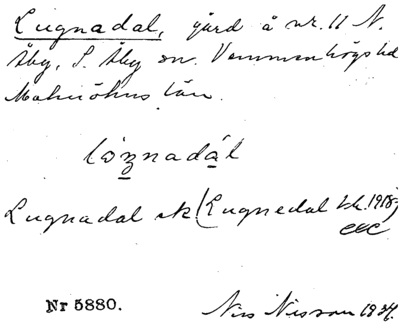 Lugnadal, gård å nr. 11 N.
Åby, S. Åby sn. Vemmenhögs hd
Malmöhus län.
Lugnadal ek (Lugnedal 1918)
Nr 5880.
Nils Nilsson 1934.